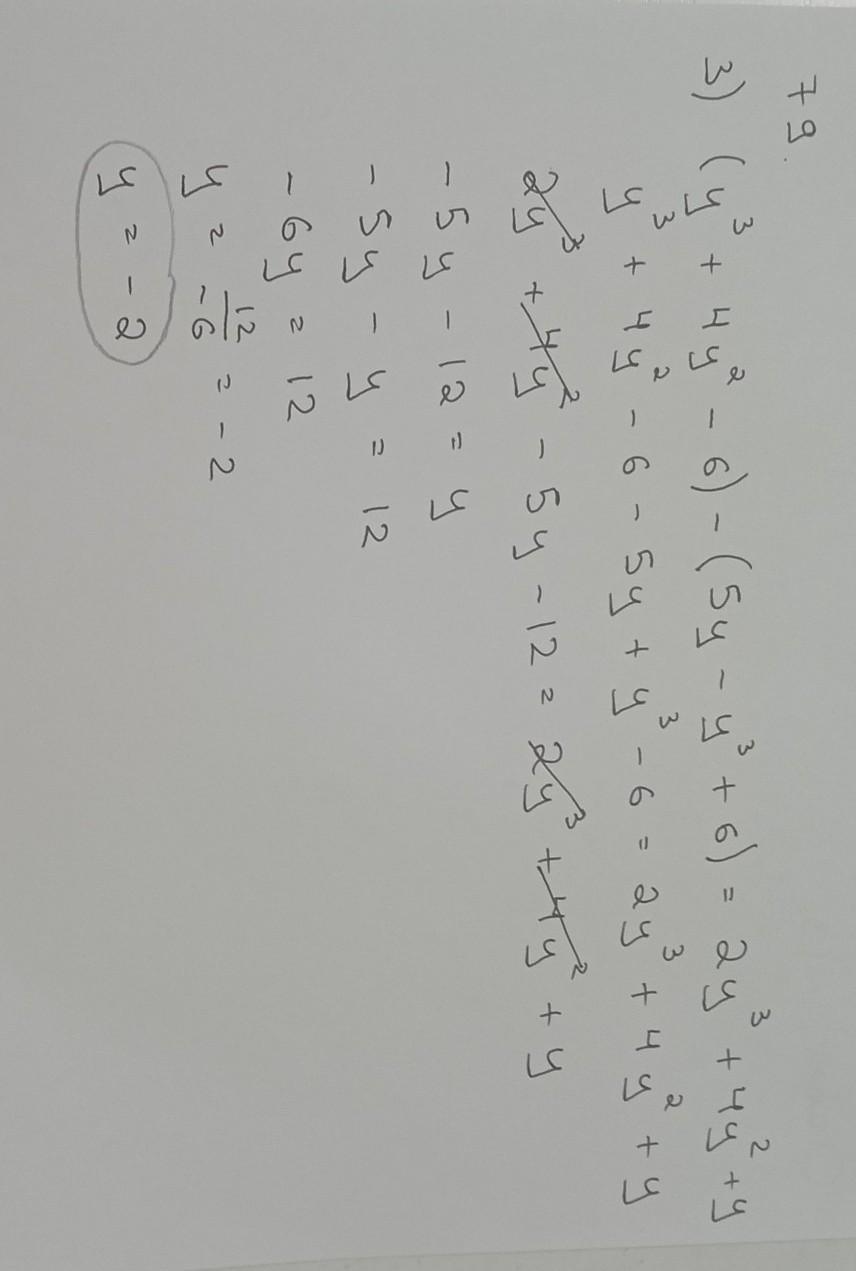 79.
3) (y³ + 4y² - 6) - (5y - y³ + 6) = 2y³ + 4y² + y
y³ + 4y² - 6 - 5y + y³ - 6 = 2y³ + 4y² + y
2y³ + 4y² - 5y - 12 = 2y³ + 4y² + y
-5y - 12 = y
-5y - y = 12
-6y = 12
y = 12/-6 = -2
y = -2